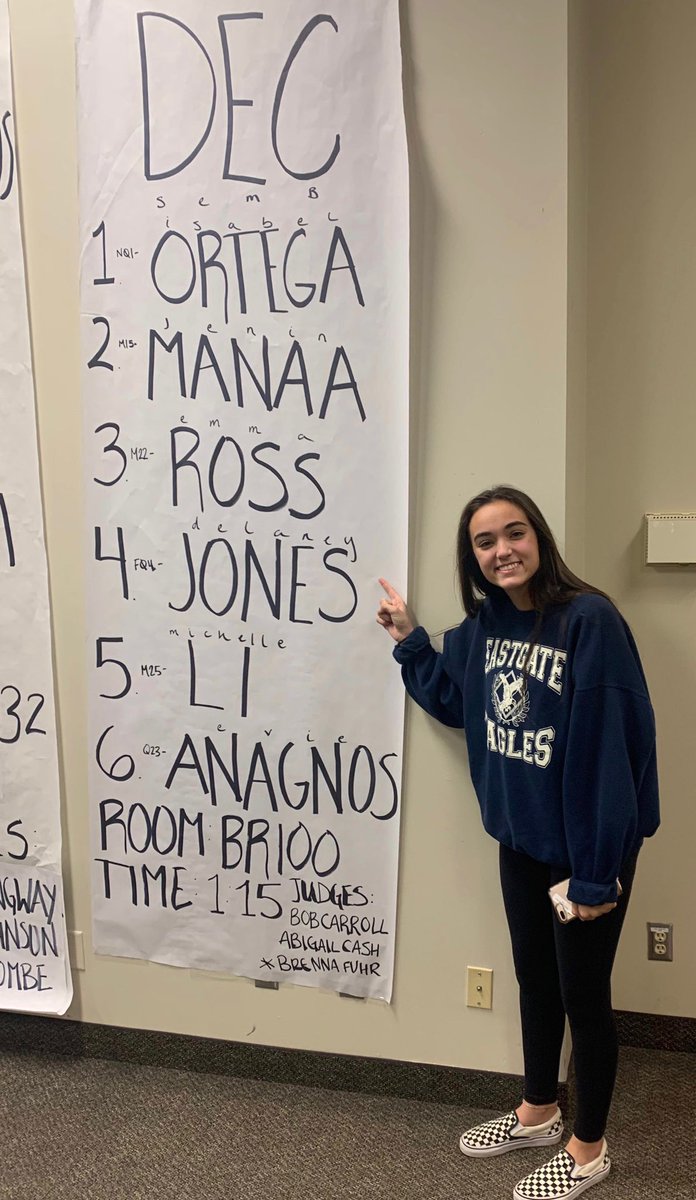 DEC
sem B
isabel
1. NQ1- ORTEGA
Jenin
2. M15- MANAA
emma
3. M22- ROSS
delaney
4. FQ4- JONES
michelle
5. M25- LI
evie
6. Q23- ANAGNOS
ROOM: BR100
TIME: 1:15
JUDGES:
BOB CARROLL
ABIGAIL CASH
*BRENNA FUHR
32
S:
EASTGATE
EAGLES